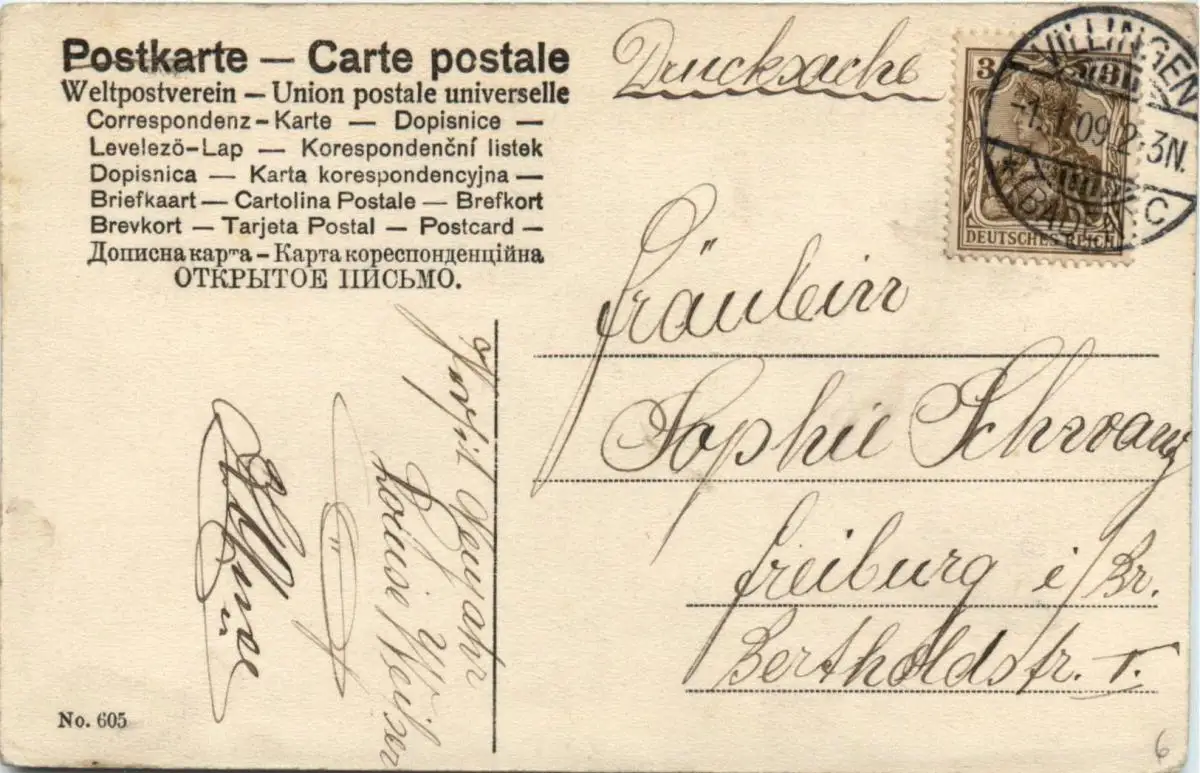 Postkarte — Carte postale
Weltpostverein — Union postale universelle
Correspondenz-Karte — Dopisnice —
Levelezö-Lap — Korespondenční listek
Dopisnica — Karta korespondencyjna —
Briefkaart — Cartolina Postale — Brefkort
Brevkort — Tarjeta Postal — Postcard —
Дописна карта — Карта кореспонденційна
ОТКРЫТОЕ ПИСЬМО.
Drucksache
3
3
DEUTSCHES REICH
VILLINGEN
-1.1.09.2-3N.
(BADEN) C
Fräulein
Sophie Schwanz
Freiburg i/Br.
Bertholdstr. 1.
Prosit Neujahr
Louise Weißer
No. 605
6